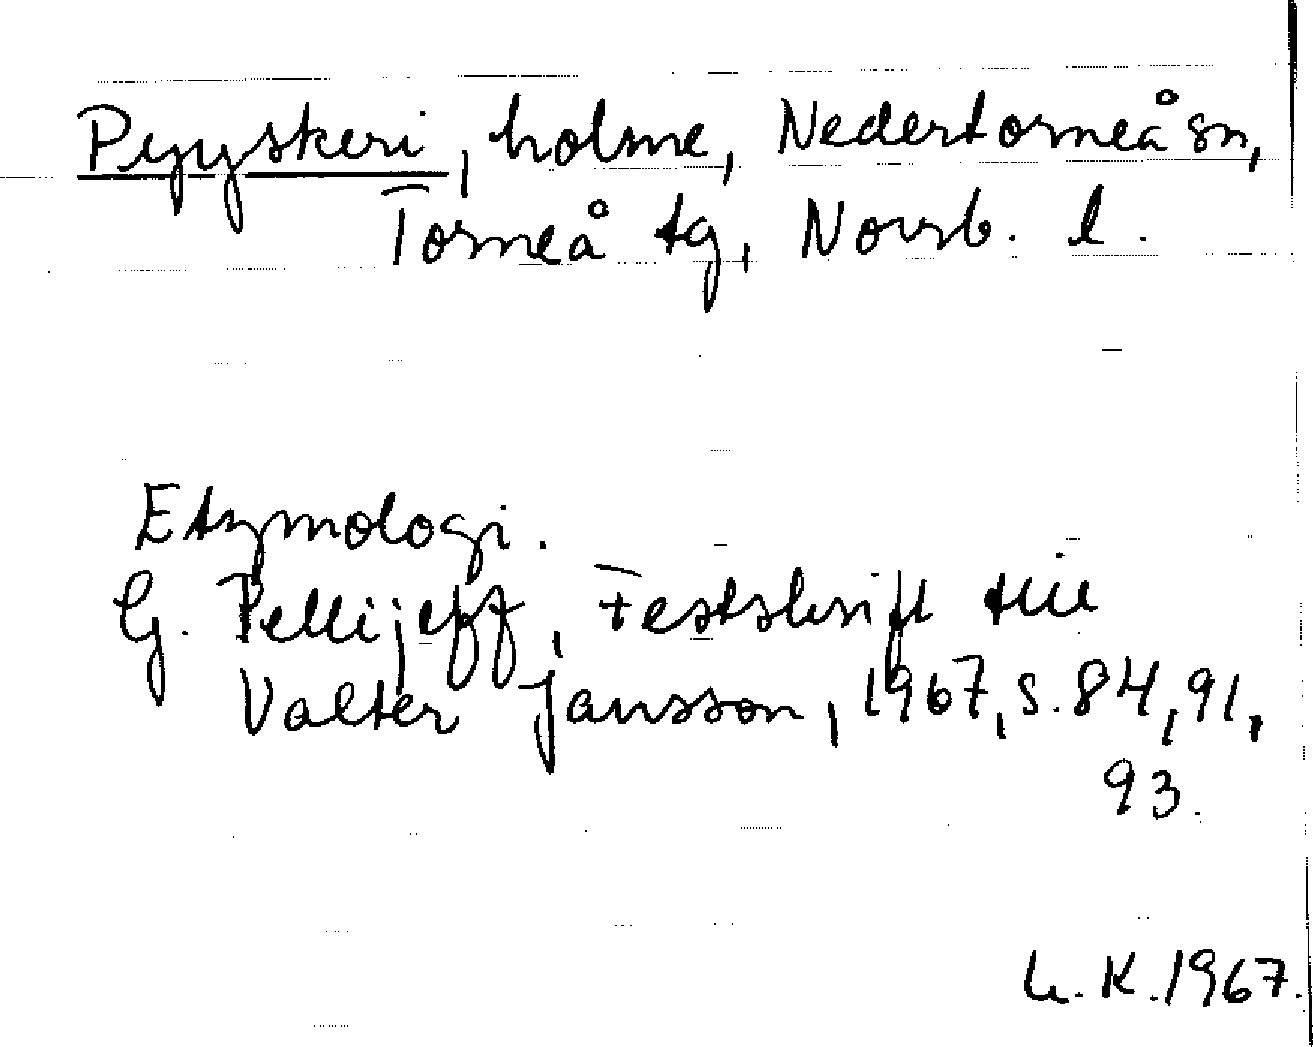 Pyyskeri, holme, Nedertorneå sn,
Torneå tg, Norrb. l.
Etymologi.
G. Pellijeff, Festskrift till
Valter Jansson, 1967, s. 84, 91,
93.
L. K. 1967.